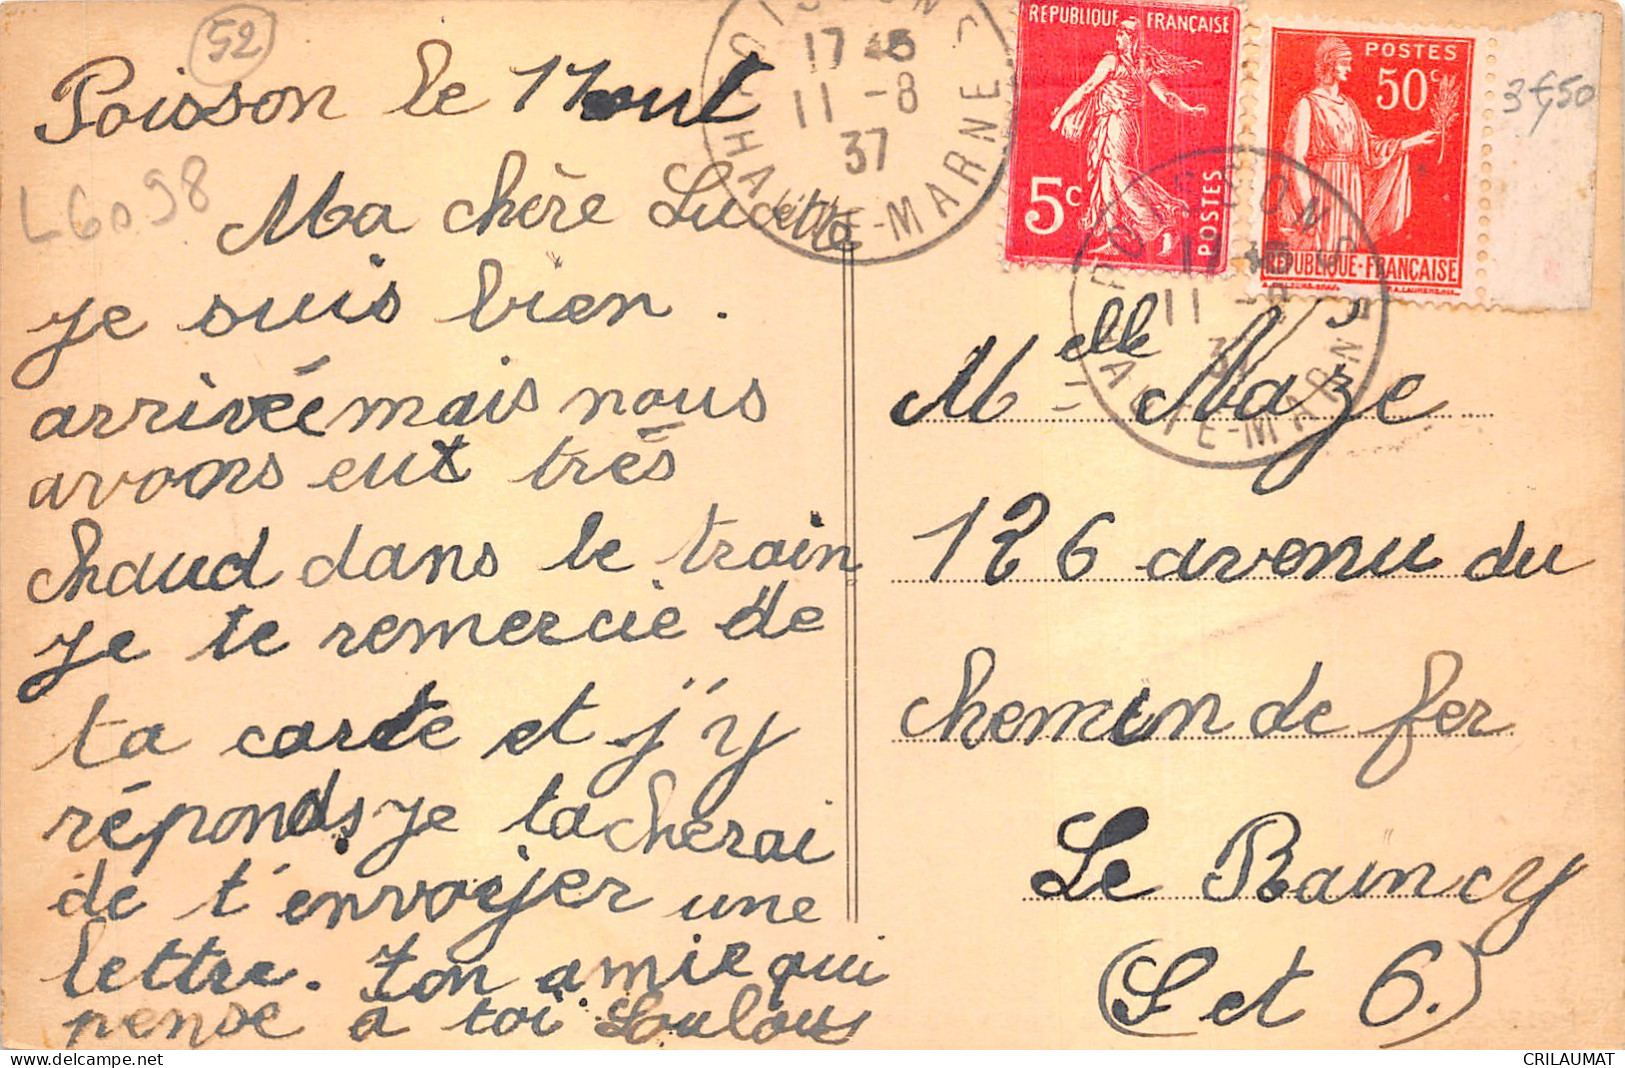 52
Poisson le 11 out
L6098
Ma chère Lucette
je suis bien.
arrivée mais nous
avons eut très
chaud dans le train
je te remercie de
ta carte et j'y
réponds, je tacherai
de t'envoyer une
lettre. Ton amie qui
pense à toi Loulou
17 45
11 -8
37
HAUTE-MARNE
RÉPUBLIQUE FRANÇAISE
5c
POSTES
POSTES
50c
RÉPUBLIQUE-FRANÇAISE
3f,50
POISSON
11 -8
HAUTE-MARNE
Melle Maze
126 avenu du
chemin de fer
Le Raincy
(S et O.)
CRILAUMAT